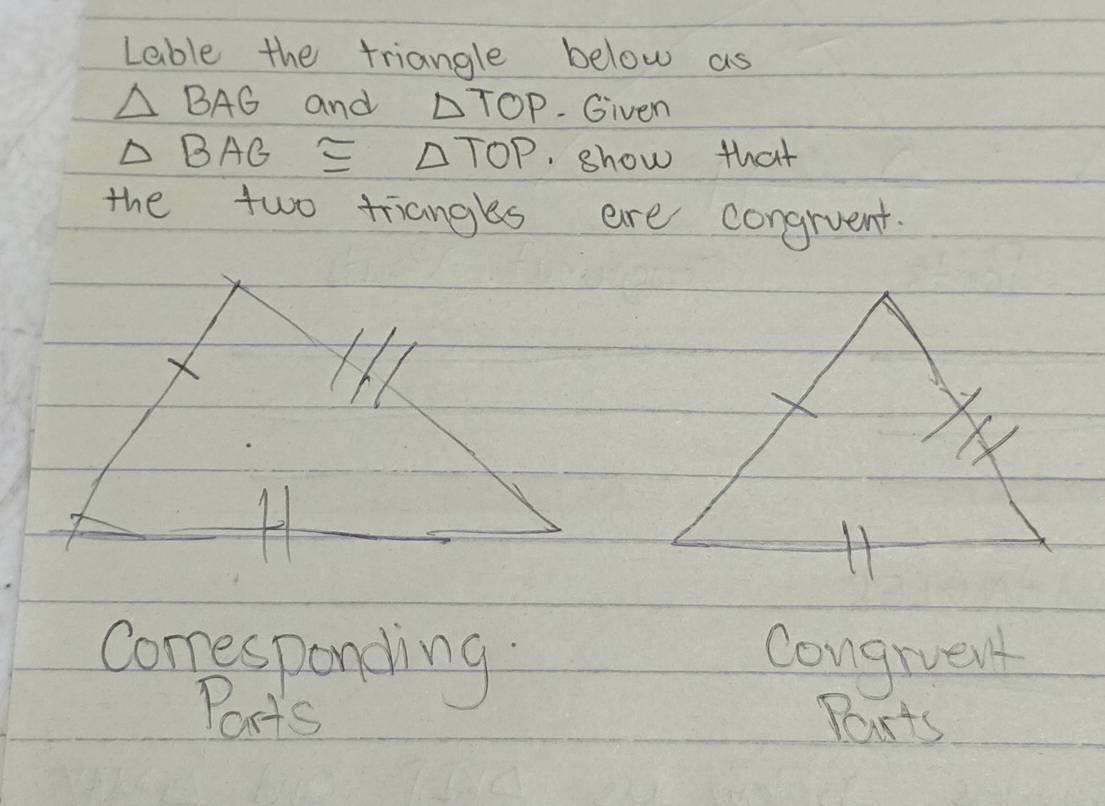 Lable the triangle below as
△ BAG and △ TOP. Given
△ BAG ≅ △ TOP. show that
the two triangles are congruent.
Corresponding Congruent
Parts Parts